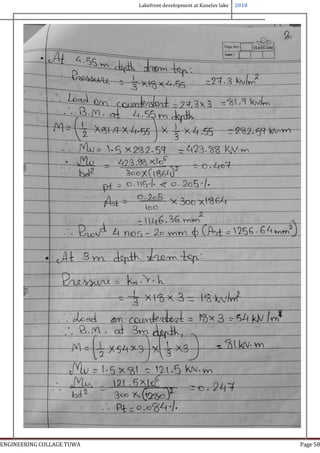 Lakefront development at Kanelav lake 2018
2
CLASSMATE
Page No.
Date :
• At 4.55 m depth from top:
Pressure = 1/3 × 18 × 4.55 = 27.3 kN/m²
∴ Load on counterfort = 27.3 × 3 = 81.9 kN/m
∴ B.M. at 4.55 m depth
M = (1/2 × 81.9 × 4.55) × 1/3 × 4.55 = 232.59 kN.m
∴ Mu = 1.5 × 232.59 = 423.88 kN.m
∴ Mu/bd² = 423.88 × 10⁶ / 300 × (1864)² = 0.407
Pt = 0.115 % < 0.205 %
Ast = 0.205/100 × 300 × 1864
= 1146.36 mm²
∴ Provd 4 nos - 20 mm ϕ (Ast = 1256.64 mm²)
• At 3 m depth from top:
Pressure = ka.γ.h
= 1/3 × 18 × 3 = 18 kN/m²
∴ Load on counterfort = 18 × 3 = 54 kN/m
∴ B.M. at 3m depth,
M = (1/2 × 54 × 3) × (1/3 × 3) = 81 kN.m
Mu = 1.5 × 81 = 121.5 kN.m
∴ Mu/bd² = 121.5 × 10⁶ / 300 × (1280)² = 0.247
∴ Pt = 0.084 %
ENGINEERING COLLAGE TUWA Page 58